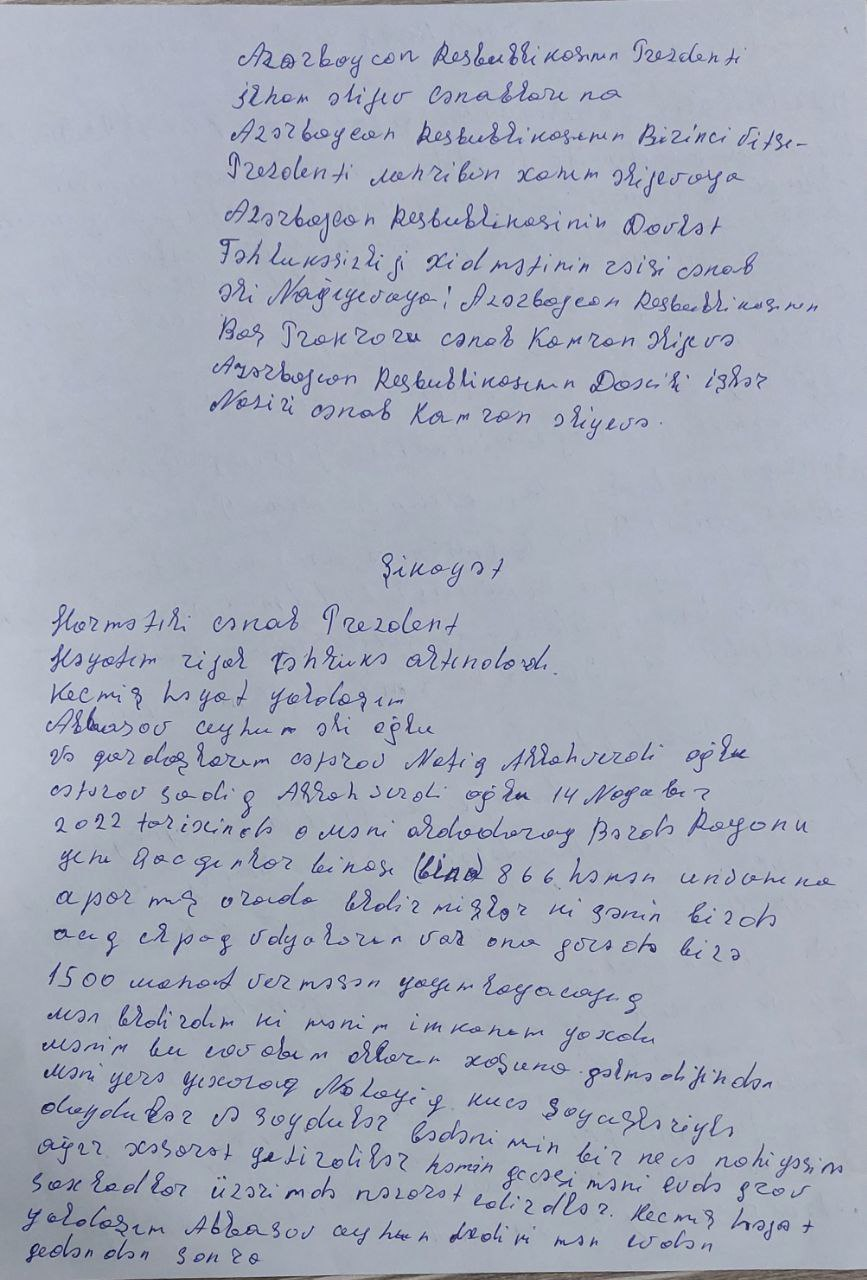 Azərbaycan Respublikasının Prezdenti
İlham Əliyev cənablarına
Azərbaycan Respublikasının Birinci Vitse-
Prezdenti Mehriban xanım Əliyevaya
Azərbaycan Respublikasinin Dovlət
Təhlukəsizliyi xidmətinin rəisi cənab
Əli Nağıyevaya! Azərbaycan Respublikasının
Baş Prokroru cənab Kamran Əliyevə
Azərbaycan Respublikasının Daxili işlər
Naziri cənab Kamran Əliyevə.
Şikayət
Hörmətli cənab Prezdent
Həyatım rijal təhlukə altındadı.
Kecmiş həyat yoldaşım
Abbasov ceyhun Əli oğlu
və qardaşlarım cəfərov Natiq Allahverdi oğlu
cəfərov Sadiq Allahverdi oğlu 14 Noyabır
2022 tarixində məni aldadaraq Bərdə Rayonu
yeni Qacqınlar binası 866 həmən unvanına
aparmış orada bildirmişlər ki sənin bizdə
acıq cılpaq vdyoların var ona görədə bizə
1500 manat verməsən yayımlayacayıq
mən bildirdim ki mənim imkanım yoxdu
mənim bu cavabım olların xoşuna gəlmədiyindən
məni yerə yıxaraq Nalayiq kucə söyuşləriylə
döydulər və soydulər bədənimin bir necə nahiyəsinə
ağır xəsarət yetirdilər həmin gecəsi məni evdə girov
saxladılar üzərimdə nəzarət edirdilər. Kecmiş həyat
yoldaşım Abbasov ceyhun dedi ki mən evdən
gedəndən sonra